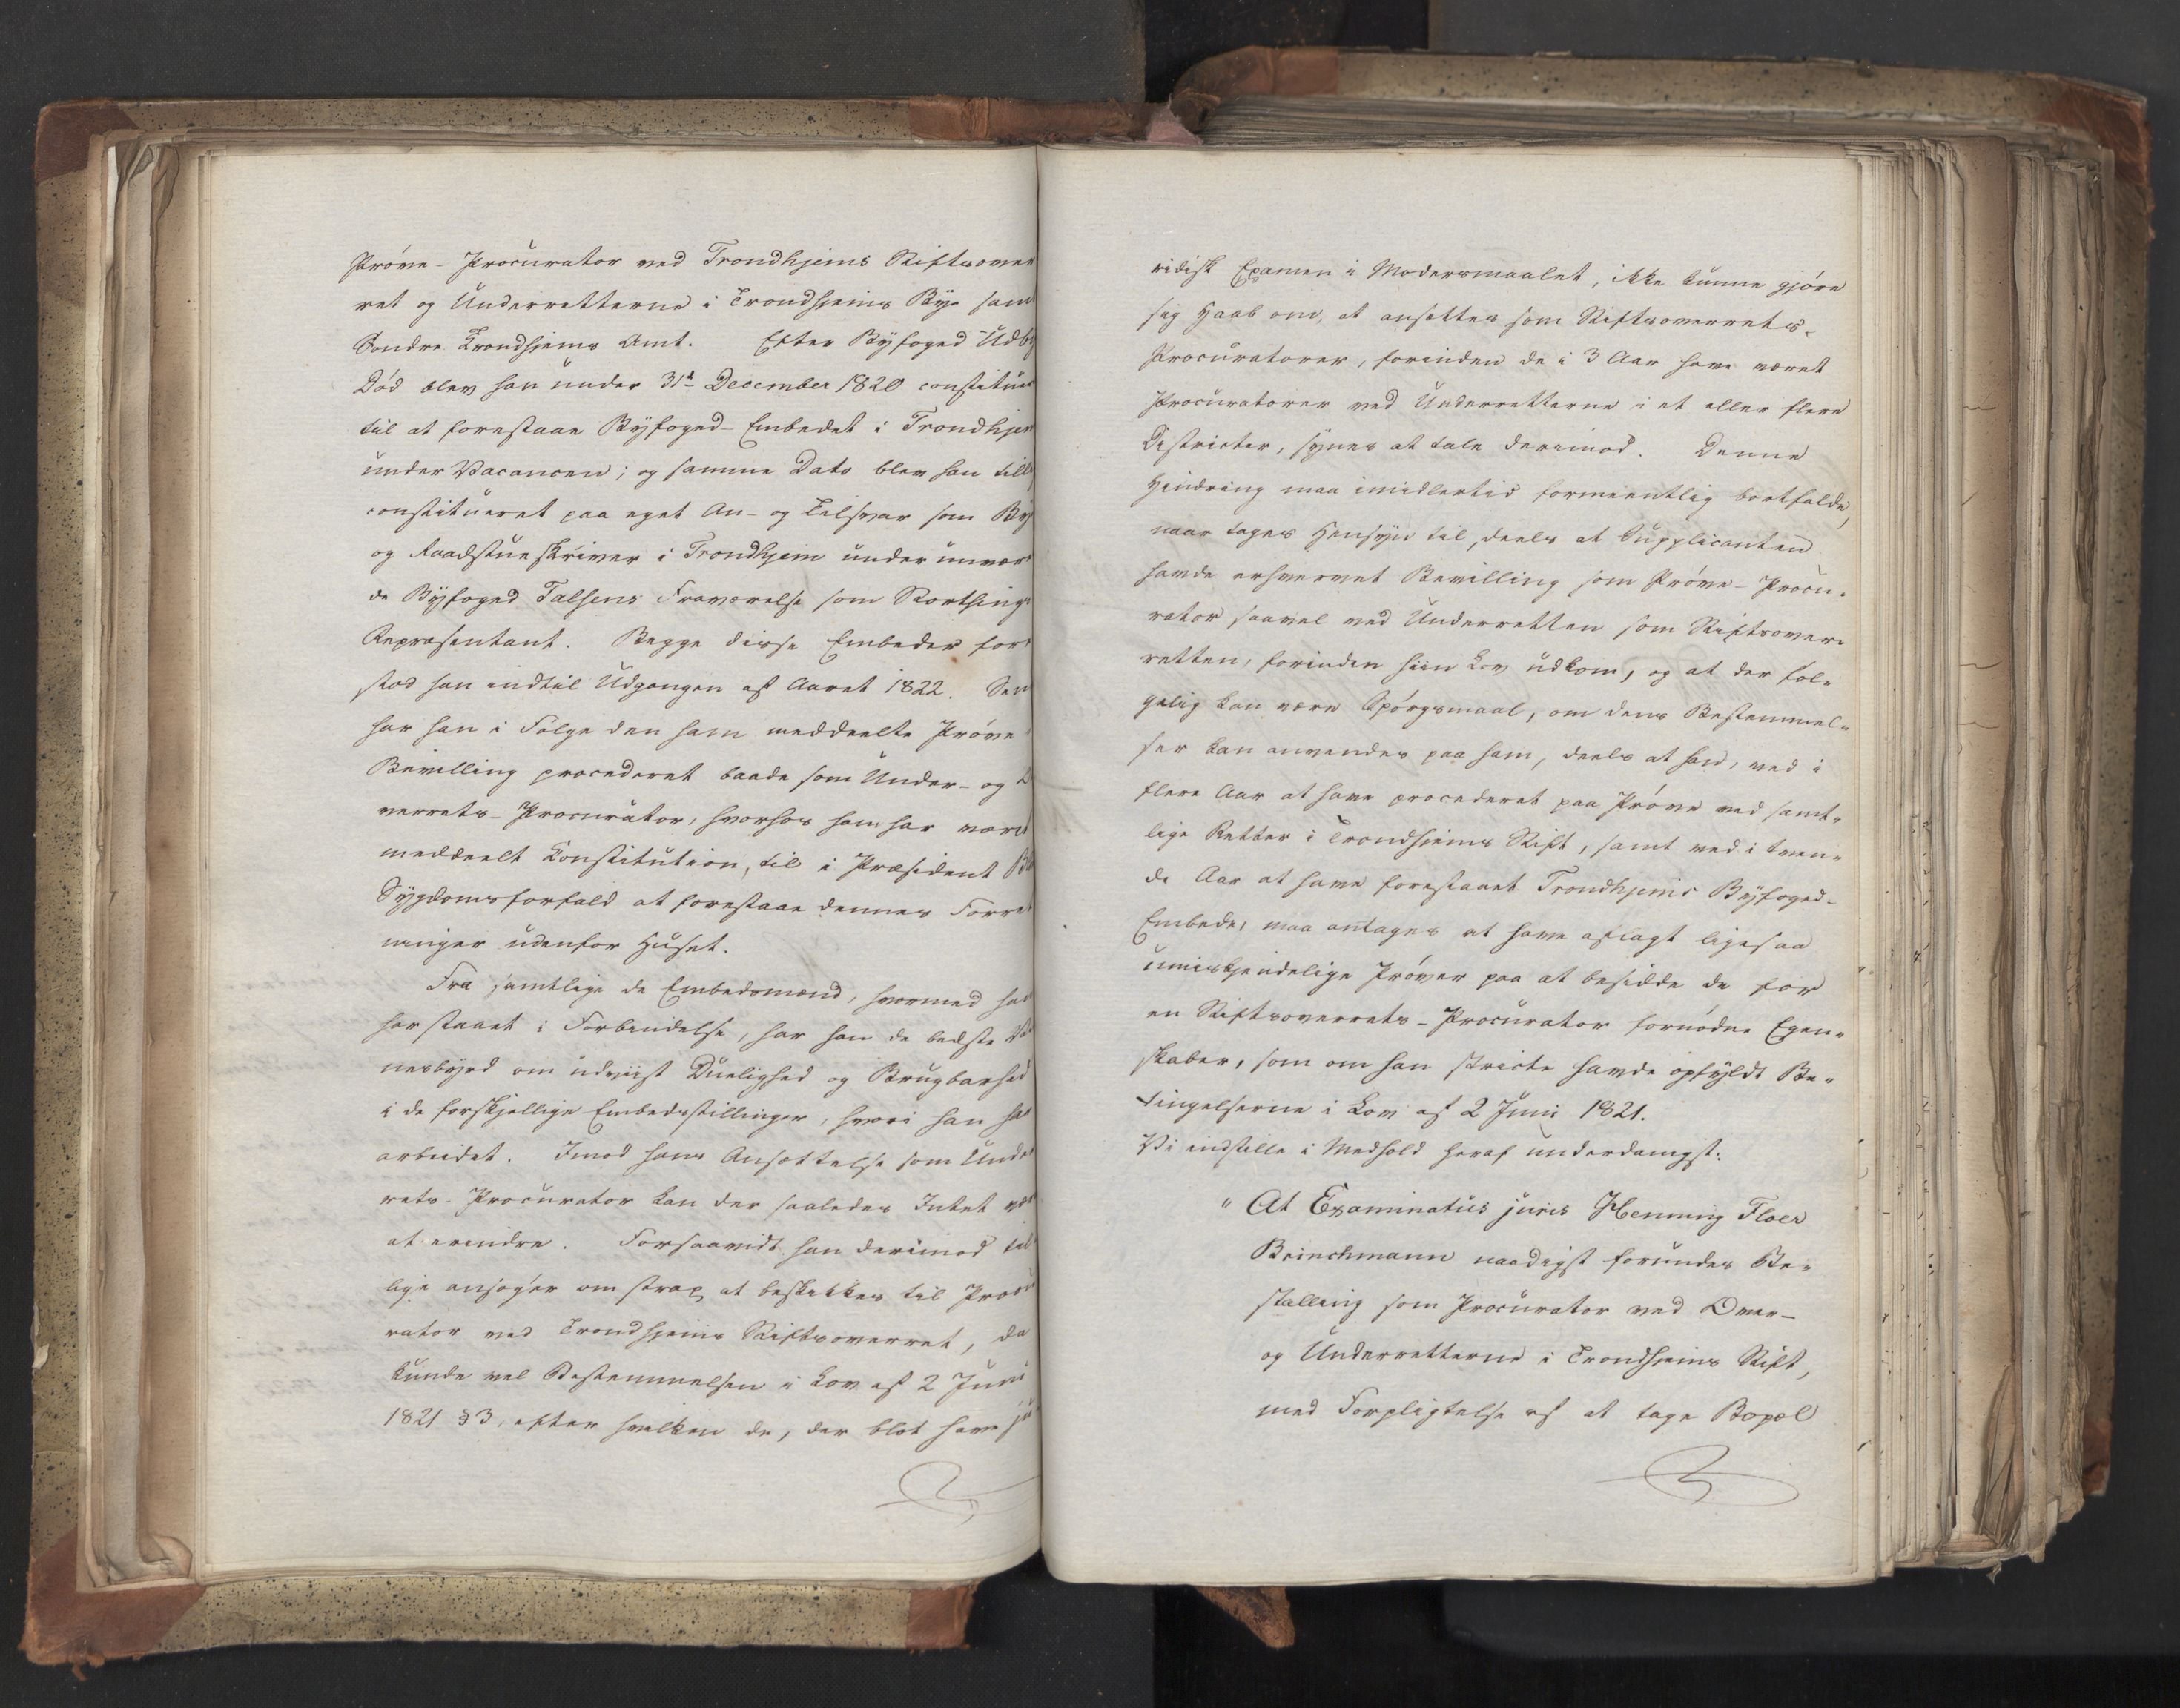 Prøve-Procurator ved Trondhjems Stiftsover
ret og Underretterne i Trondhjems Bye samt
Søndre Trondhjems Amt. Efter Byfoged Udby
Død blev han under 31te December 1820 constitue
til at forestaae Byfoged-Embedet i Trondhjem
under Vacancen; og samme Dato blev han till
constitueret paa eget An- og Tilsvar som By
og Raadstueskriver i Trondhjem under nuvær
de Byfoged Falsens Fraværelse som Storthings
Repræsentant. Begge disse Embeder for
stod han indtil Udgangen af Aaret 1822. Sen
har han i Følge den ham meddeelte Prøve
Bevilling procederet baade som Under- og O
verrets-Procurator, hvorhos ham har været
meddeelt Constitution, til i Præsident
Sygdomsforfald at forestaae dennes Forret
ninger udenfor Huset.
Fra samtlige de Embedsmænd, hvormed han
har staaet i Forbindelse, har han de bedste Vid
nesbyrd om udviist Duelighed og Brugbarhed
i de forskjellige Embedsstillinger, hvori han har
arbeidet. Imod hans Ansættelse som Under
rets-Procurator kan der saaledes Intet være
at erindre. Forsaavidt han derimod till
lige ansøger om strax at beskikkes til Procu
rator ved Trondhjems Stiftsoverret, da
kunde vel Bestemmelsen i Lov af 2 Juni
1821 § 3, efter hvilken de, der blot have ju
ridisk Examen i Modersmaalet, ikke kunne gjøre
sig Haab om, at ansættes som Stiftsoverrets-
Procuratorer, forinden de i 3 Aar have været
Procuratorer ved Underretterne i et eller flere
Districter, synes at tale derimod. Denne
Hindring maa imidlertid formeentlig bortfalde,
naar tages Hensyn til, deels at Supplicanten
havde erhvervet Bevilling som Prøve-Procu-
rator saavel ved Underretten som Stiftsover-
retten, forinden hiin Lov udkom, og at der føl-
gelig kan være Spørgsmaal, om dens Bestemmel-
ser kan anvendes paa ham, deels at han, ved i
flere Aar at have procederet paa Prøve ved samt-
lige Retter i Trondhjems Stift, samt ved i tven-
de Aar at have forestaaet Trondhjems Byfoged-
Embede, maa antages at have aflagt ligesaa
umiskjendelige Prøver paa at besidde de for
en Stiftsoverrets-Procurator fornødne Egen-
skaber, som om han stricte havde opfyldt Be-
tingelserne i Lov af 2 Juni 1821.
Vi indstille i Medhold heraf underdanigst:
" At Examinatus juris Henning Floer
Brinchmann naadigst forundes Be-
stalling som Procurator ved Over-
og Underretterne i Trondhjems Stift,
med Forpligtelse af at tage Bopæl